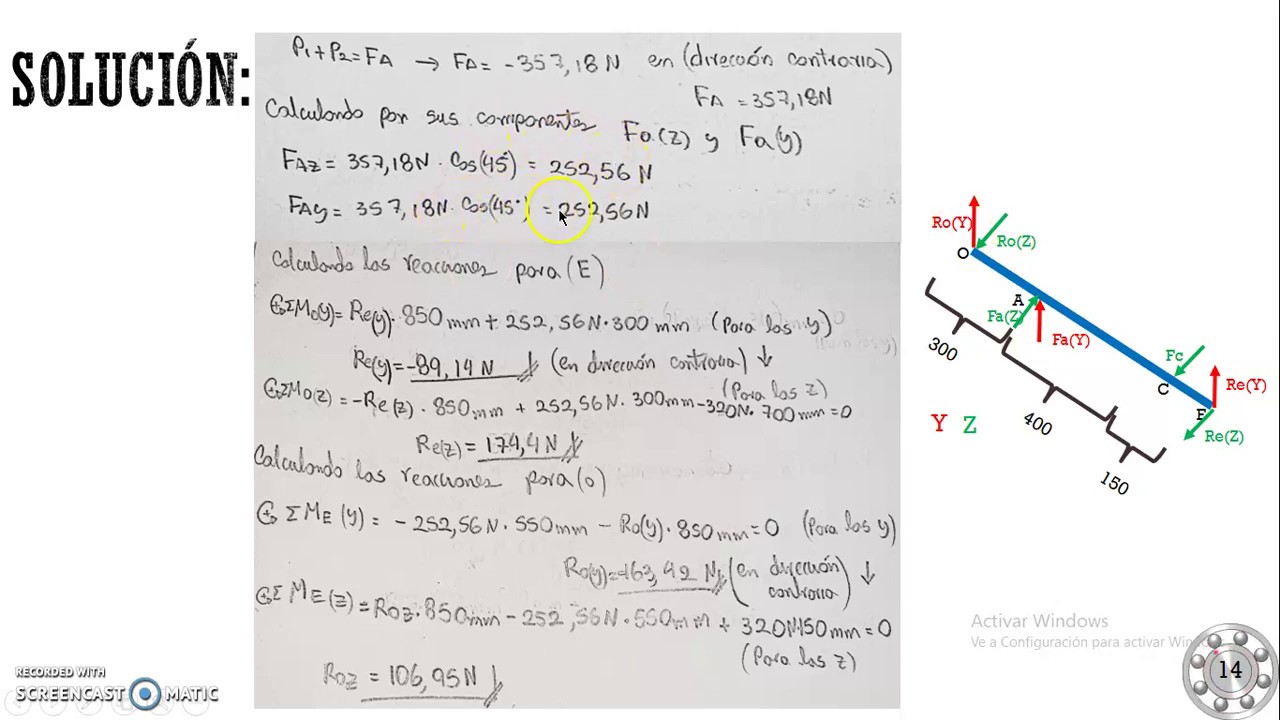 SOLUCIÓN:
P1+P2=FA → FA= -357,18N en (dirección contraria)
FA =357,18N
Calculando por sus componentes Fa(z) y Fa(y)
FAz = 357,18N · Cos(45°) = 252,56 N
FAy = 357,18N · Cos(45°) = 252,56N
Calculando las reacciones para (E)
ΣMo(y)= Re(y)·850mm + 252,56N·300mm (Para las y)
Re(y)=-89,14 N (en dirección contraria) ↓
ΣMo(z)=-Re(z)·850mm + 252,56N·300mm-320N·700mm=0
(Para los z)
Re(z)= 174,4N
Calculando las reacciones para(o)
ΣME(y)= -252,56N·550mm - Ro(y)·850mm=0 (Para las y)
Ro(y)=-163,42 N (en dirección contraria) ↓
ΣME(z)=Roz·850mm-252,56N·550mm + 320N150mm=0
(Para las z)
Roz = 106,95N
Ro(Y)
Ro(Z)
O
A
Fa(Z)
Fa(Y)
300
Fc
C
Re(Y)
E
Re(Z)
400
Y Z
150
Activar Windows
Ve a Configuración para activar Win
14
RECORDED WITH
SCREENCAST MATIC